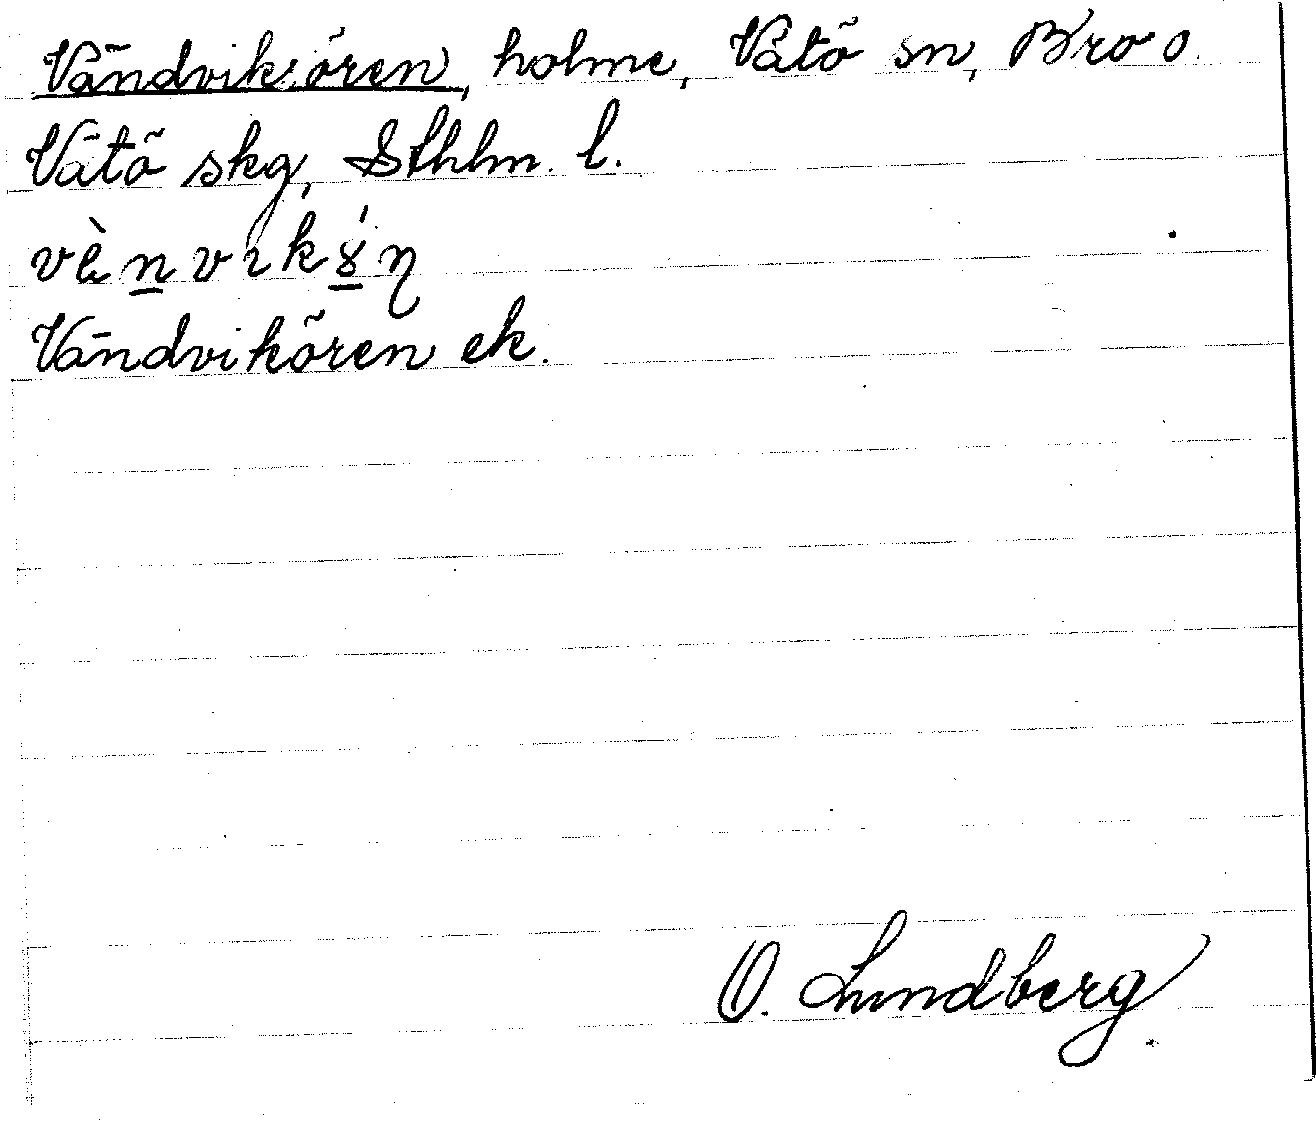 Vändvikören, holme, Vätö sn, Bro o.
Vätö skg, Sthlm. l.
Vändvikören ek.
O. Lundberg